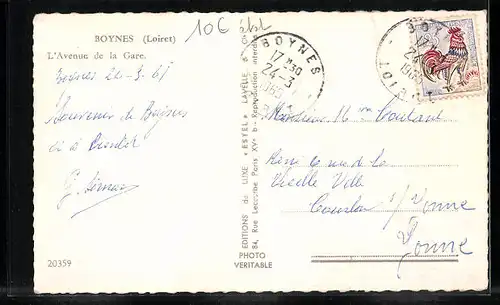 BOYNES (Loiret)
10€
L'Avenue de la Gare.
Boynes 24-3-65
Souvenir de Boynes
et à Bientôt
20359
EDITIONS de LUXE « ESTEL » LAVELLE &
84, Rue Lecourbe Paris XVe - Reproduction interdite
PHOTO
VERITABLE
BOYNES
17 H30
24-3
1965
LOIRET
Monsieur Mme Coulant
rue de la
Vieille Ville
Courlon s/ Yonne
Yonne